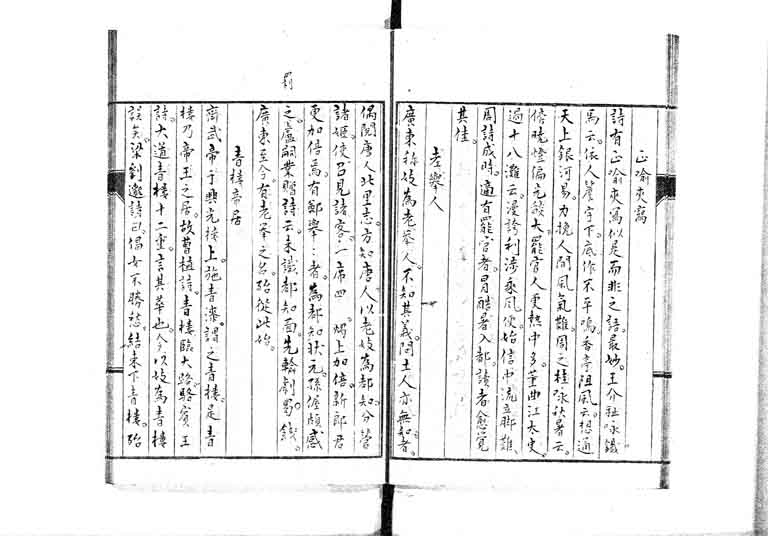 正喻夾寫
詩有正喻夾寫似是而非之語。最妙。王介祉咏鐵
馬云。依人簷宇下。底作不平鳴。香亭阻風云。想通
天上銀河易。力挽人間風氣難。周之桂咏秋暑云。
傍曉燈偏無燄大。罷官人更熱中多。董曲江太史
過十八灘云。漫誇利涉乘風便。始信中流立脚難。
周詩成時。適有罷官者。冒酷暑入都。讀者愈覺
其佳。
老舉人
廣東稱妓為老舉人。不知其義。問土人亦無知者。
偶閱唐人北里志。方知唐人以老妓為都知。分管
諸姬。使召見諸客。一席四 燭上加倍。新郎君
更加倍焉。有鄭舉舉者。為都知。狀元孫偓頗惑
之。盧嗣業贈詩云。未識都知面。先輸劇罰錢。
廣東至今有老舉之名。殆從此始。
罰
青樓帝居
齊武帝于興光樓上施青漆。謂之青樓。是青
樓乃帝王之居。故曹植詩。青樓臨大路。駱賓王
詩。大道青樓十二重。言其華也。今以妓為青樓
誤矣。梁劉邈詩曰。倡女不勝愁。結束下青樓。殆